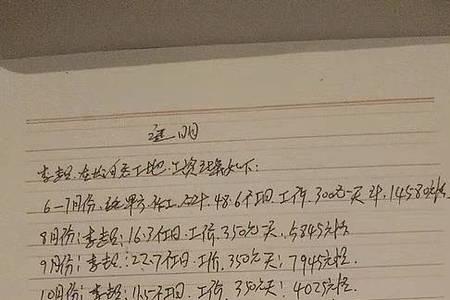 证明
李超，在 工地，工资结算如下：
6-7月份， 48.6个工日，工价，300元一天，计，14580元
8月份；李超；16.7个工日，工价，350元一天，5845元
9月份；李超；22.7个工日，工价，350元一天；7945元
10月份，李超；11.5个工日，工价，350元一天；4025元